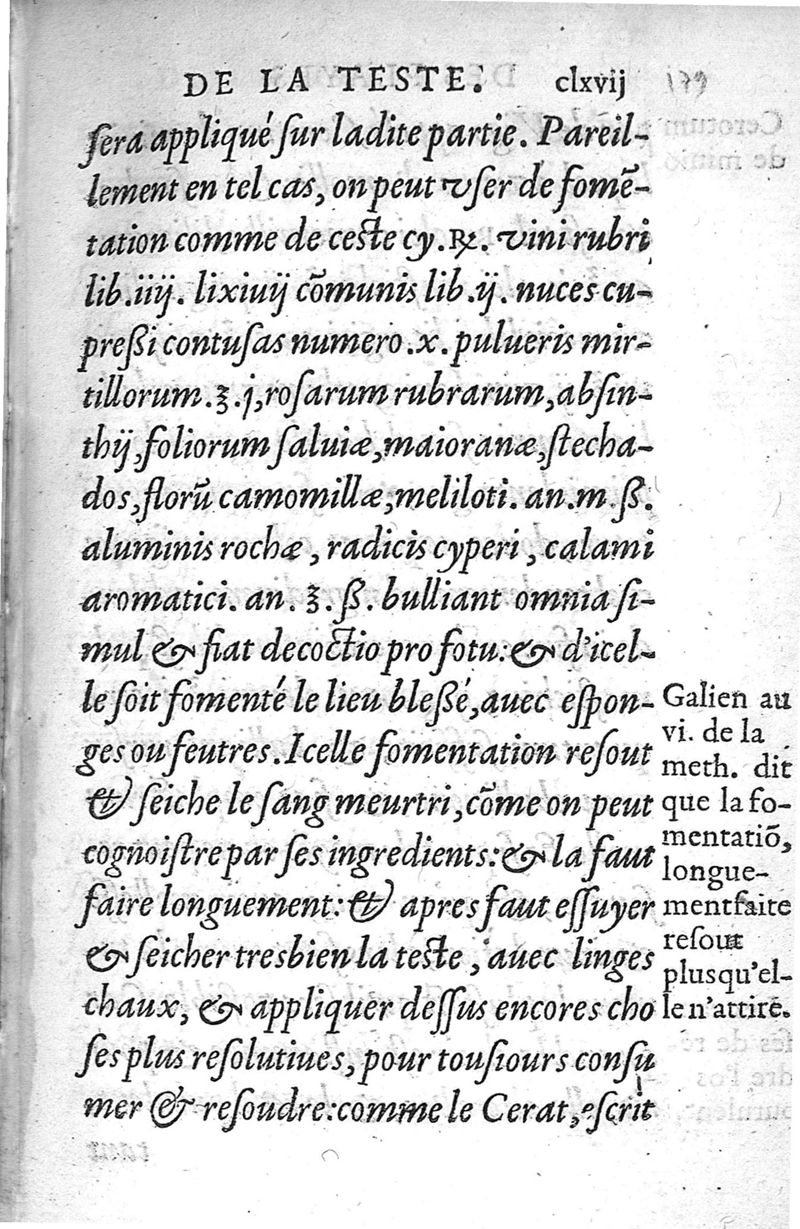 DE LA TESTE. clxvij 179
ſera appliqué ſur ladite partie. Pareil-
lement en tel cas, on peut vſer de fomẽ-
tation comme de ceſte cy. ℞. vini rubri
lib. iiij. lixiuij cõmunis lib. ij. nuces cu-
preßi contuſas numero .x. pulueris mir-
tillorum .ʒ. j, roſarum rubrarum, abſin-
thij, foliorum ſaluiæ, maioranæ, ſtecha-
dos, florũ camomillæ, meliloti. an. m. ß.
aluminis rochæ, radicis cyperi, calami
aromatici. an. ʒ. ß. bulliant omnia ſi-
mul & fiat decoctio pro fotu: & d'icel-
le ſoit fomenté le lieu bleßé, auec eſpon-
ges ou feutres. Icelle fomentation reſout
& ſeiche le ſang meurtri, cõme on peut
cognoiſtre par ſes ingredients: & la faut
faire longuement: & apres faut eſſuyer
& ſeicher tresbien la teſte, auec linges
chaux, & appliquer deſſus encores cho
ſes plus reſolutiues, pour touſiours conſu
mer & reſoudre: comme le Cerat, eſcrit
Galien au
vi. de la
meth. dit
que la fo-
mentatiõ,
longue-
mentfaite
reſout
plusqu'el-
le n'attire.